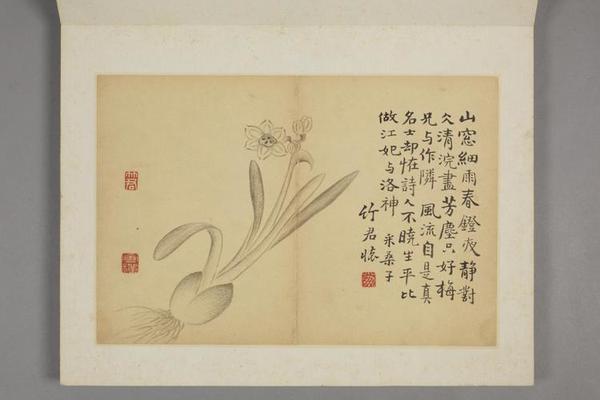 山窓細雨春鐙夜静對
仌清浣盡芳塵只好梅
兄与作隣 風流自是真
名士却怪詩人不曉生平比
做江妃与洛神 采桑子
竹君